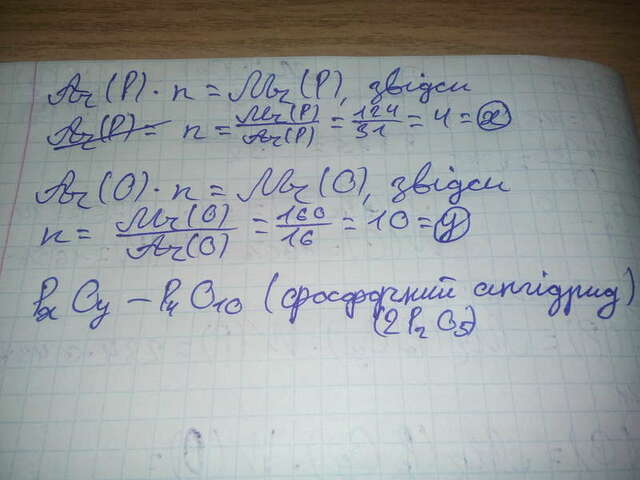 Ar(P) · n = Mr(P), звідси
Ar(P) = n = Mr(P)/Ar(P) = 124/31 = 4 = x
Ar(O) · n = Mr(O), звідси
n = Mr(O)/Ar(O) = 160/16 = 10 = y
PxOy – P4O10 (фосфорний ангідрид)
(2P2O5)